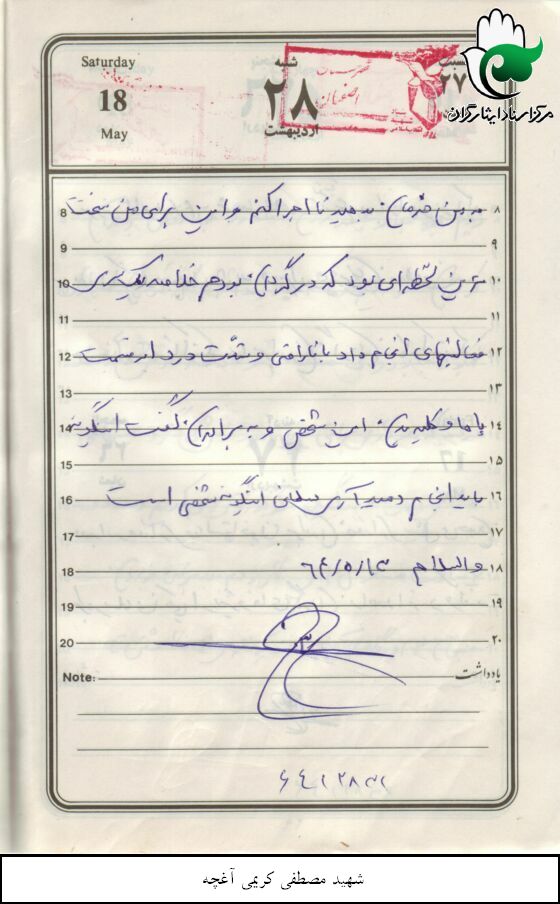 Saturday
18
May
شنبه
۲۸
اردیبهشت
۲۷
اصفهان
مرکز اسناد ایثارگران
8 به من فرمان بدهید تا اجرا کنم و این برای من سخت ۸
9 ۹
10 ترین لحظه‌ای بود که در گردان بودم خلاصه یک سری ۱۰
11 ۱۱
12 فعالیتهای انجام داد با ناراحتی و شدت درد از قسمت ۱۲
13 ۱۳
14 پاها و کلیه بدن این شخص و به برادران گفت اینگونه ۱۴
15 ۱۵
16 باید انجام دهید آری اینگونه شخصی است ۱۶
17 ۱۷
18 والسلام ۶۴/۵/۱۳ ۱۸
19 ۱۹
20 ۲۰
Note: یادداشت
شهید مصطفی کریمی آغچه